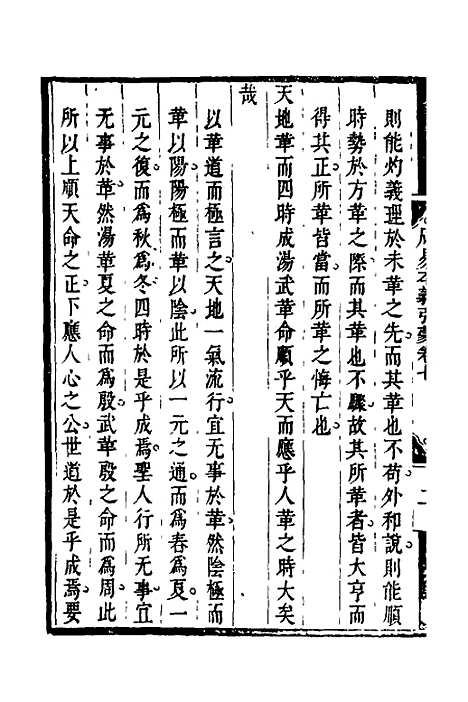 周易本義引蒙卷七
二
則能灼義理於未革之先而其革也不苟外和說則能順
時勢於方革之際而其革也不驟故其所革者皆大亨而
得其正所革皆當而所革之悔亡也
天地革而四時成湯武革命順乎天而應乎人革之時大矣
哉
以革道而極言之天地一氣流行宜无事於革然陰極而
革以陽陽極而革以陰此所以一元之通而爲春爲夏一
元之復而爲秋爲冬四時於是乎成焉聖人行所无事宜
无事於革然湯革夏之命而爲殷武革殷之命而爲周此
所以上順天命之正下應人心之公世道於是乎成焉要